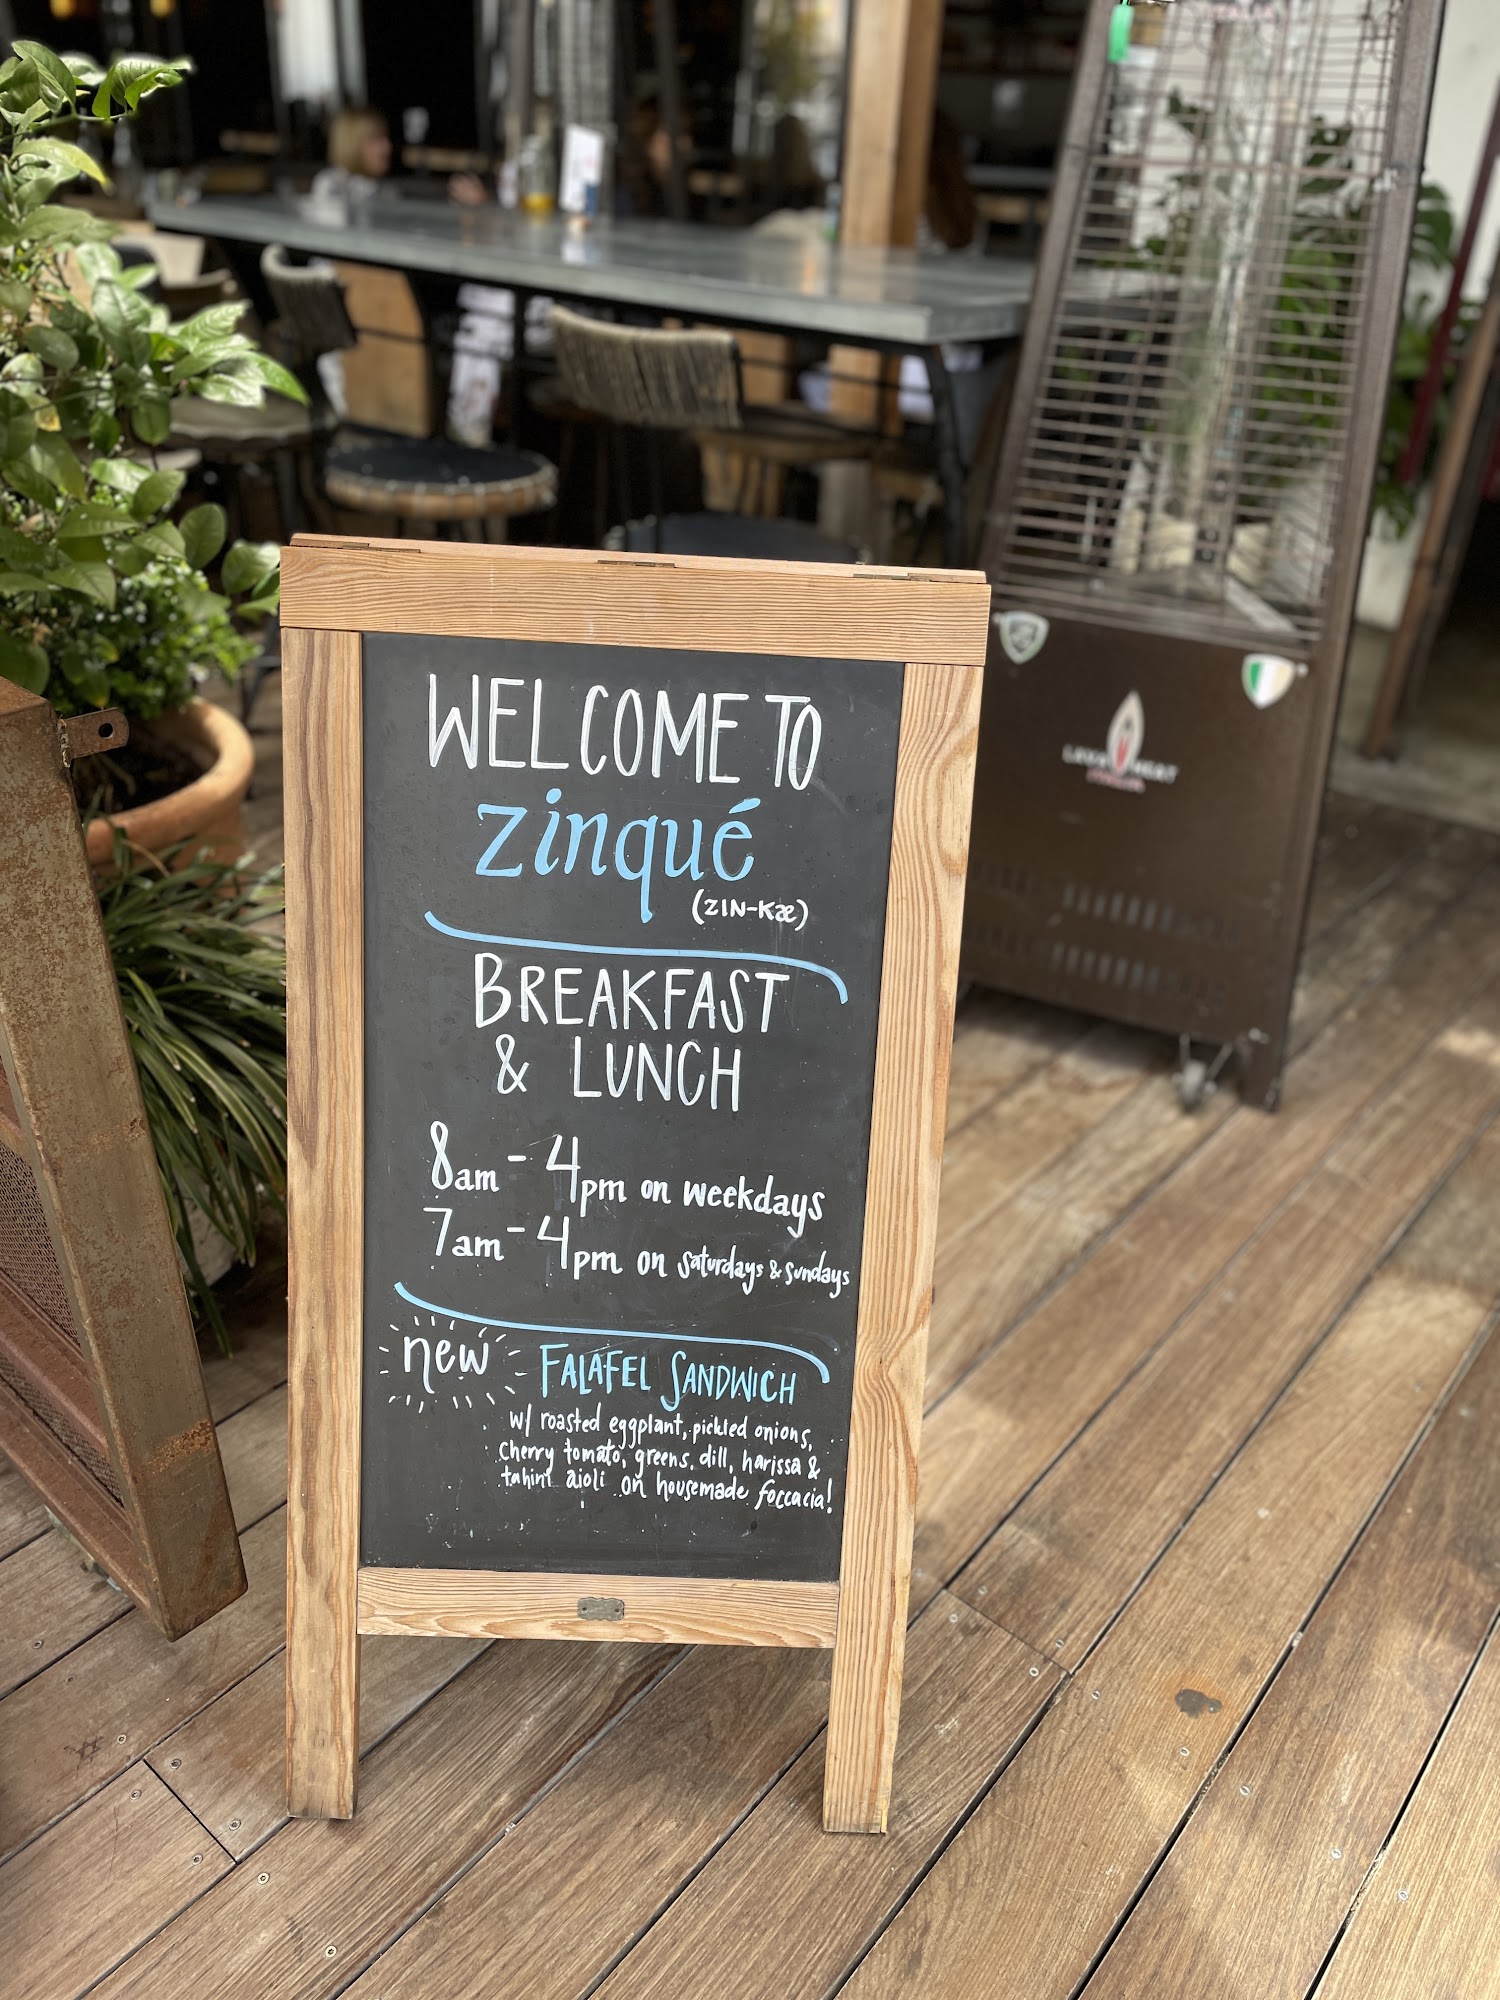 WELCOME TO
zinqué
(ZIN-Kæ)
BREAKFAST
& LUNCH
8am - 4pm on weekdays
7am - 4pm on saturdays & sundays
new FALAFEL SANDWICH
w/ roasted eggplant, pickled onions,
cherry tomato, greens, dill, harissa &
tahini aioli on housemade foccacia!
LAVA HEAT
ITALIA